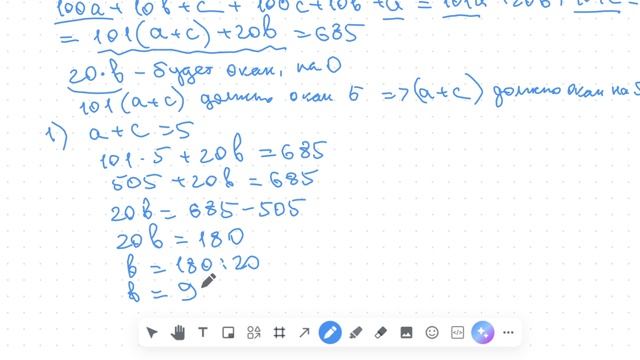 100a + 10b + c + 100c + 10b + a = 101a + 20b + 101c =
= 101(a+c) + 20b = 685
20·b – будет окан, на 0
101(a+c) должно окан 5 => (a+c) должно окан на 5
1) a+c = 5
101·5 + 20b = 685
505 + 20b = 685
20b = 685 – 505
20b = 180
b = 180 : 20
b = 9
T